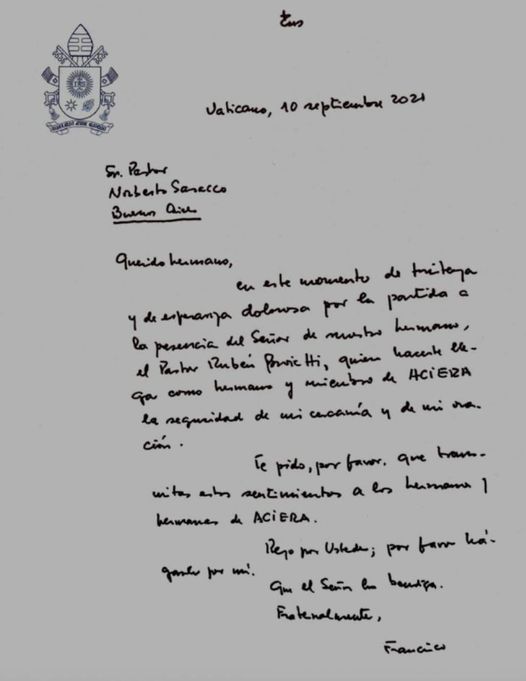 Vaticano, 10 septiembre 2021
Sr. Pastor
Norberto Saracco
Buenos Aires
Querido hermano,
en este momento de tristeza
y de esperanza dolorosa por la partida a
la presencia del Señor de nuestro hermano,
el Pastor Rubén Proietti, quiero hacerte lle-
gar como hermano y miembro de ACIERA
la seguridad de mi cercanía y de mi ora-
ción.
Te pido, por favor, que trans-
mitas estos sentimientos a los hermanos y
hermanas de ACIERA.
Rezo por Ustedes; por favor há-
ganlo por mí.
Que el Señor los bendiga.
Fraternalmente,
Francisco